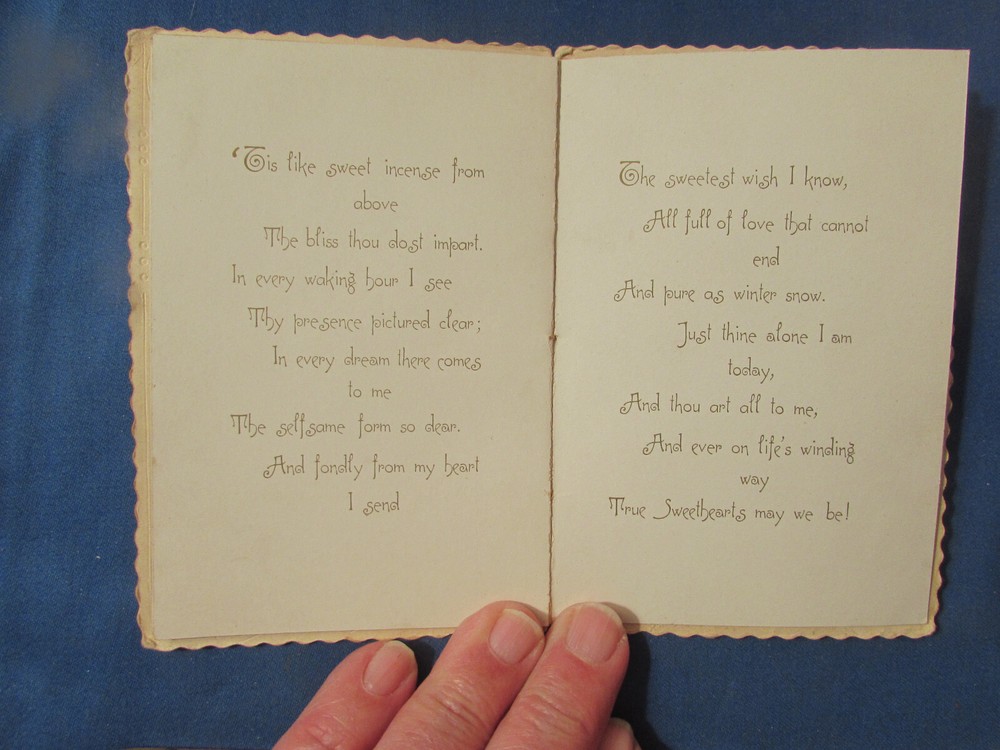 ‘Tis like sweet incense from
above
The bliss thou dost impart.
In every waking hour I see
Thy presence pictured clear;
In every dream there comes
to me
The selfsame form so dear.
And fondly from my heart
I send
The sweetest wish I know,
All full of love that cannot
end
And pure as winter snow.
Just thine alone I am
today,
And thou art all to me,
And ever on life's winding
way
True Sweethearts may we be!